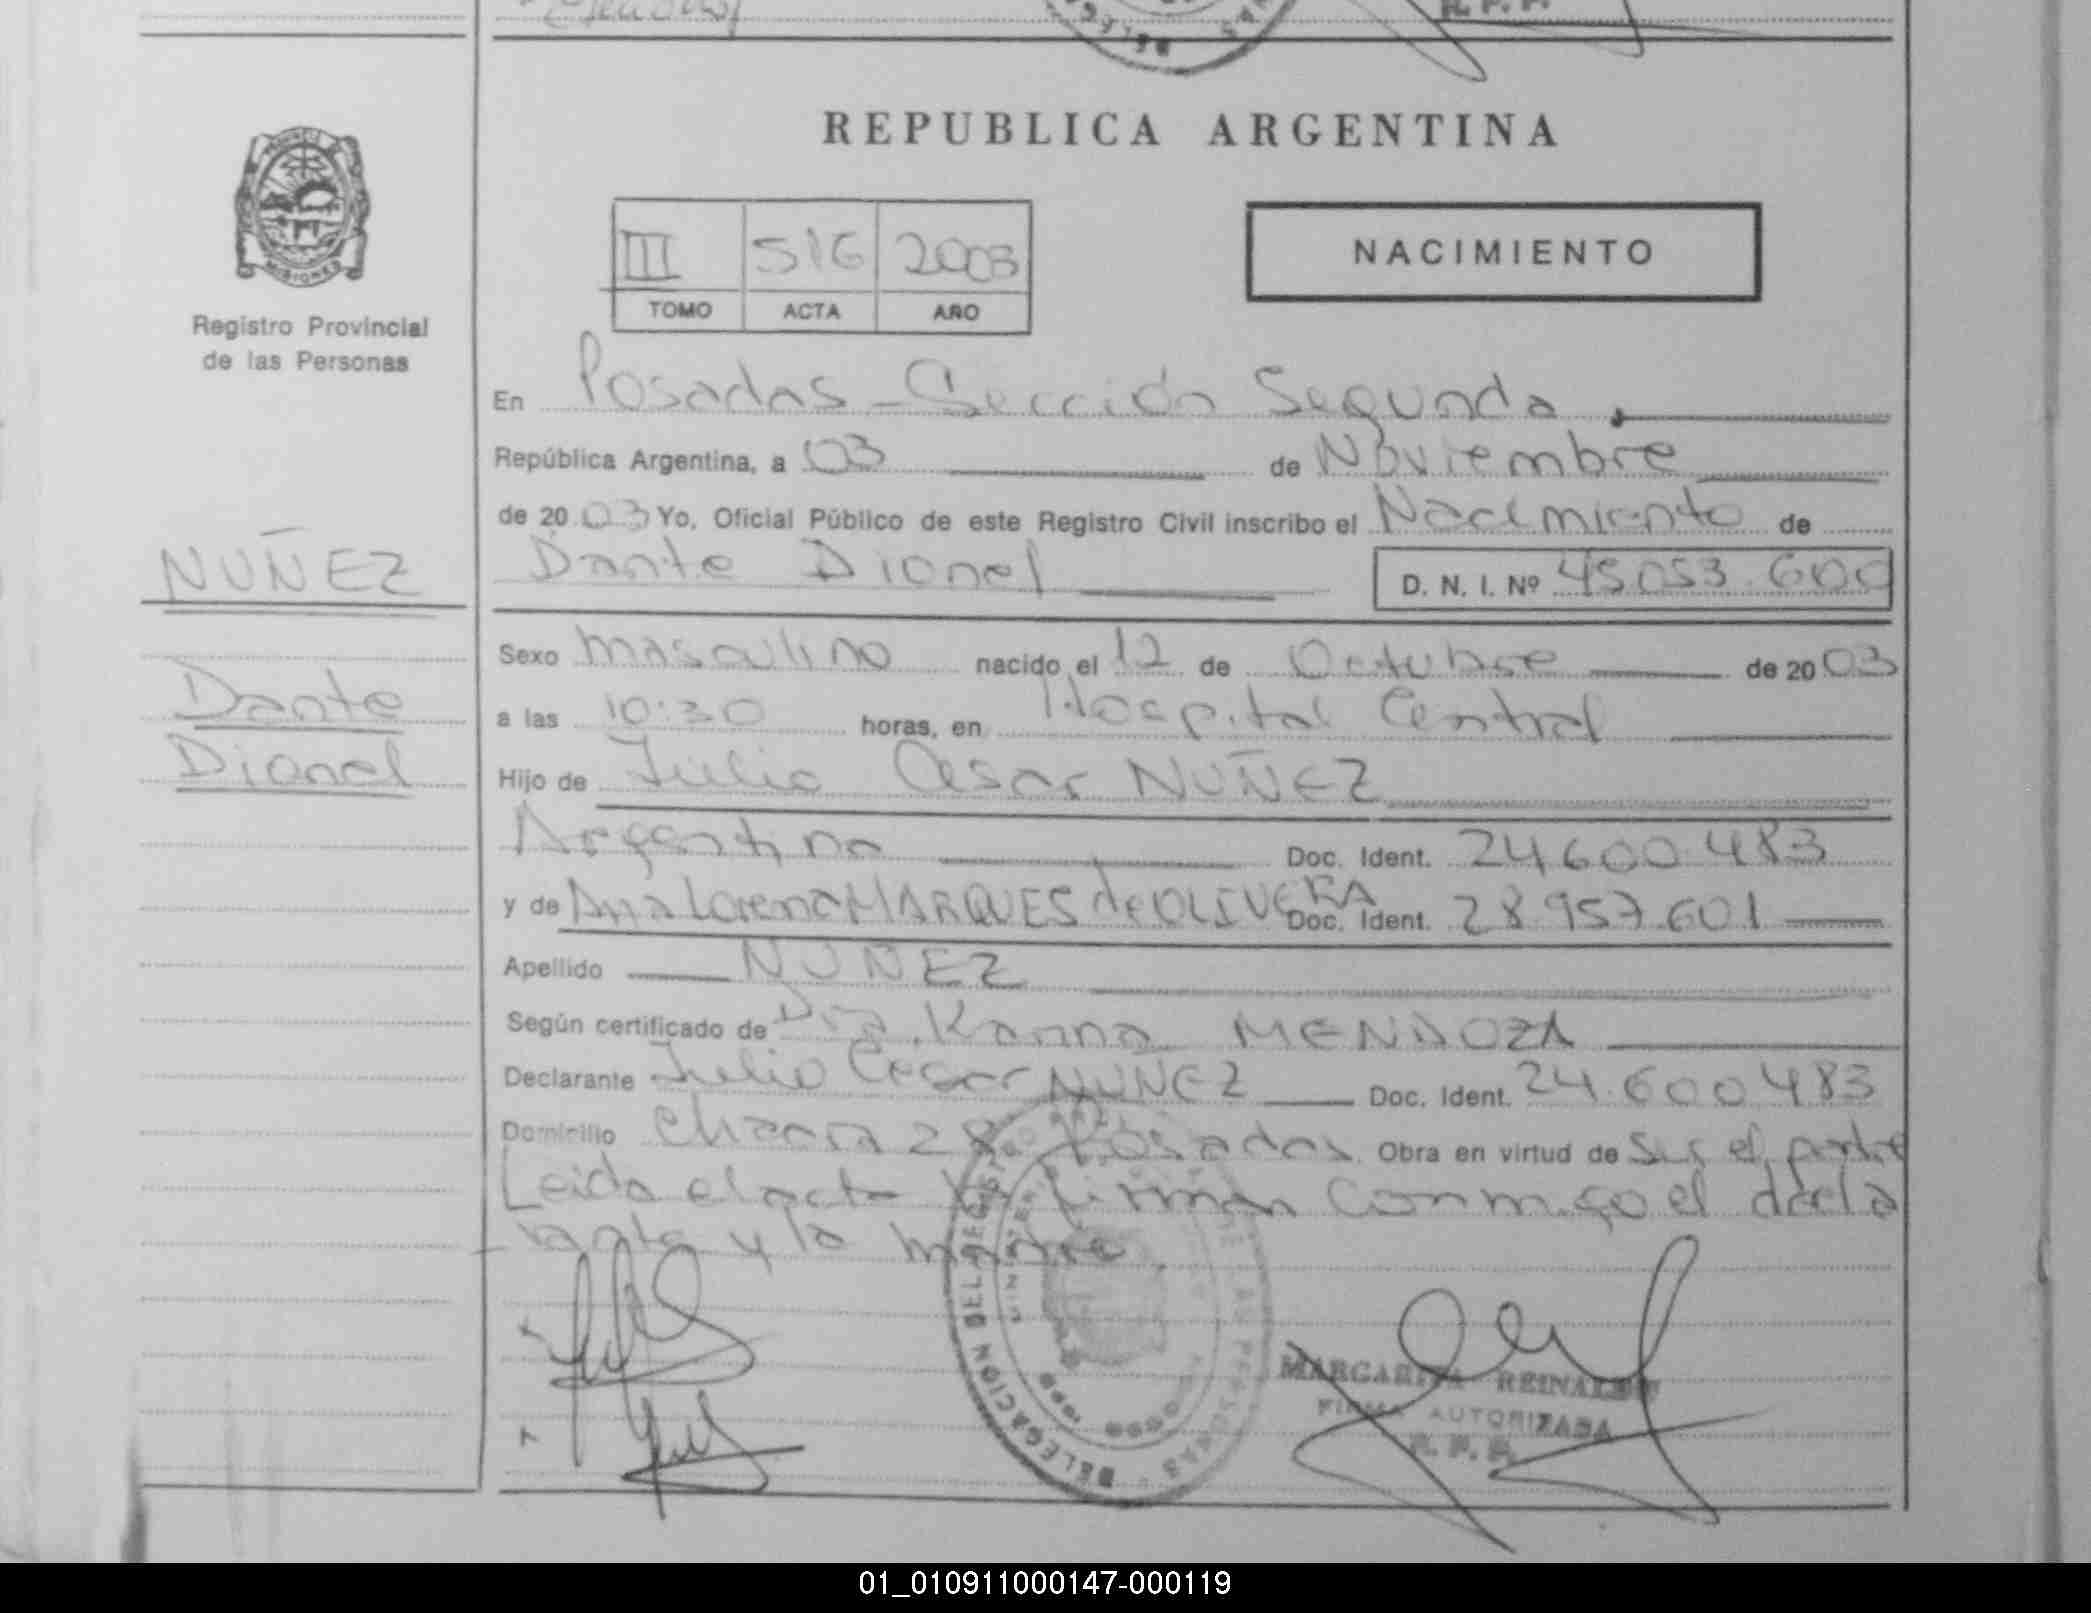 REPUBLICA ARGENTINA
III 516 2003
TOMO ACTA AÑO
NACIMIENTO
MISIONES
Registro Provincial
de las Personas
En Posadas - Sección Segunda
República Argentina, a 03 de Noviembre
de 2003 Yo, Oficial Público de este Registro Civil inscribo el Nacimiento de
Dante Dionel D. N. I. Nº 45.053.600
NUÑEZ
Dante
Dionel
Sexo masculino nacido el 12 de Octubre de 2003
a las 10:30 horas, en Hospital Central
Hijo de Julio Cesar NUÑEZ
Argentino Doc. Ident. 24.600.483
y de Ana Lorena MARQUES de OLIVERA Doc. Ident. 28.957.601
Apellido NUÑEZ
Según certificado de Dra. Karina MENDOZA
Declarante Julio Cesar NUÑEZ Doc. Ident. 24.600.483
Domicilio Chacra 28 Posadas. Obra en virtud de Ser el padre
Leida el acta la firman conmigo el decla
rante y la madre.
MARGARITA
FIRMA AUTORIZADA
R. P. P.
01_010911000147-000119